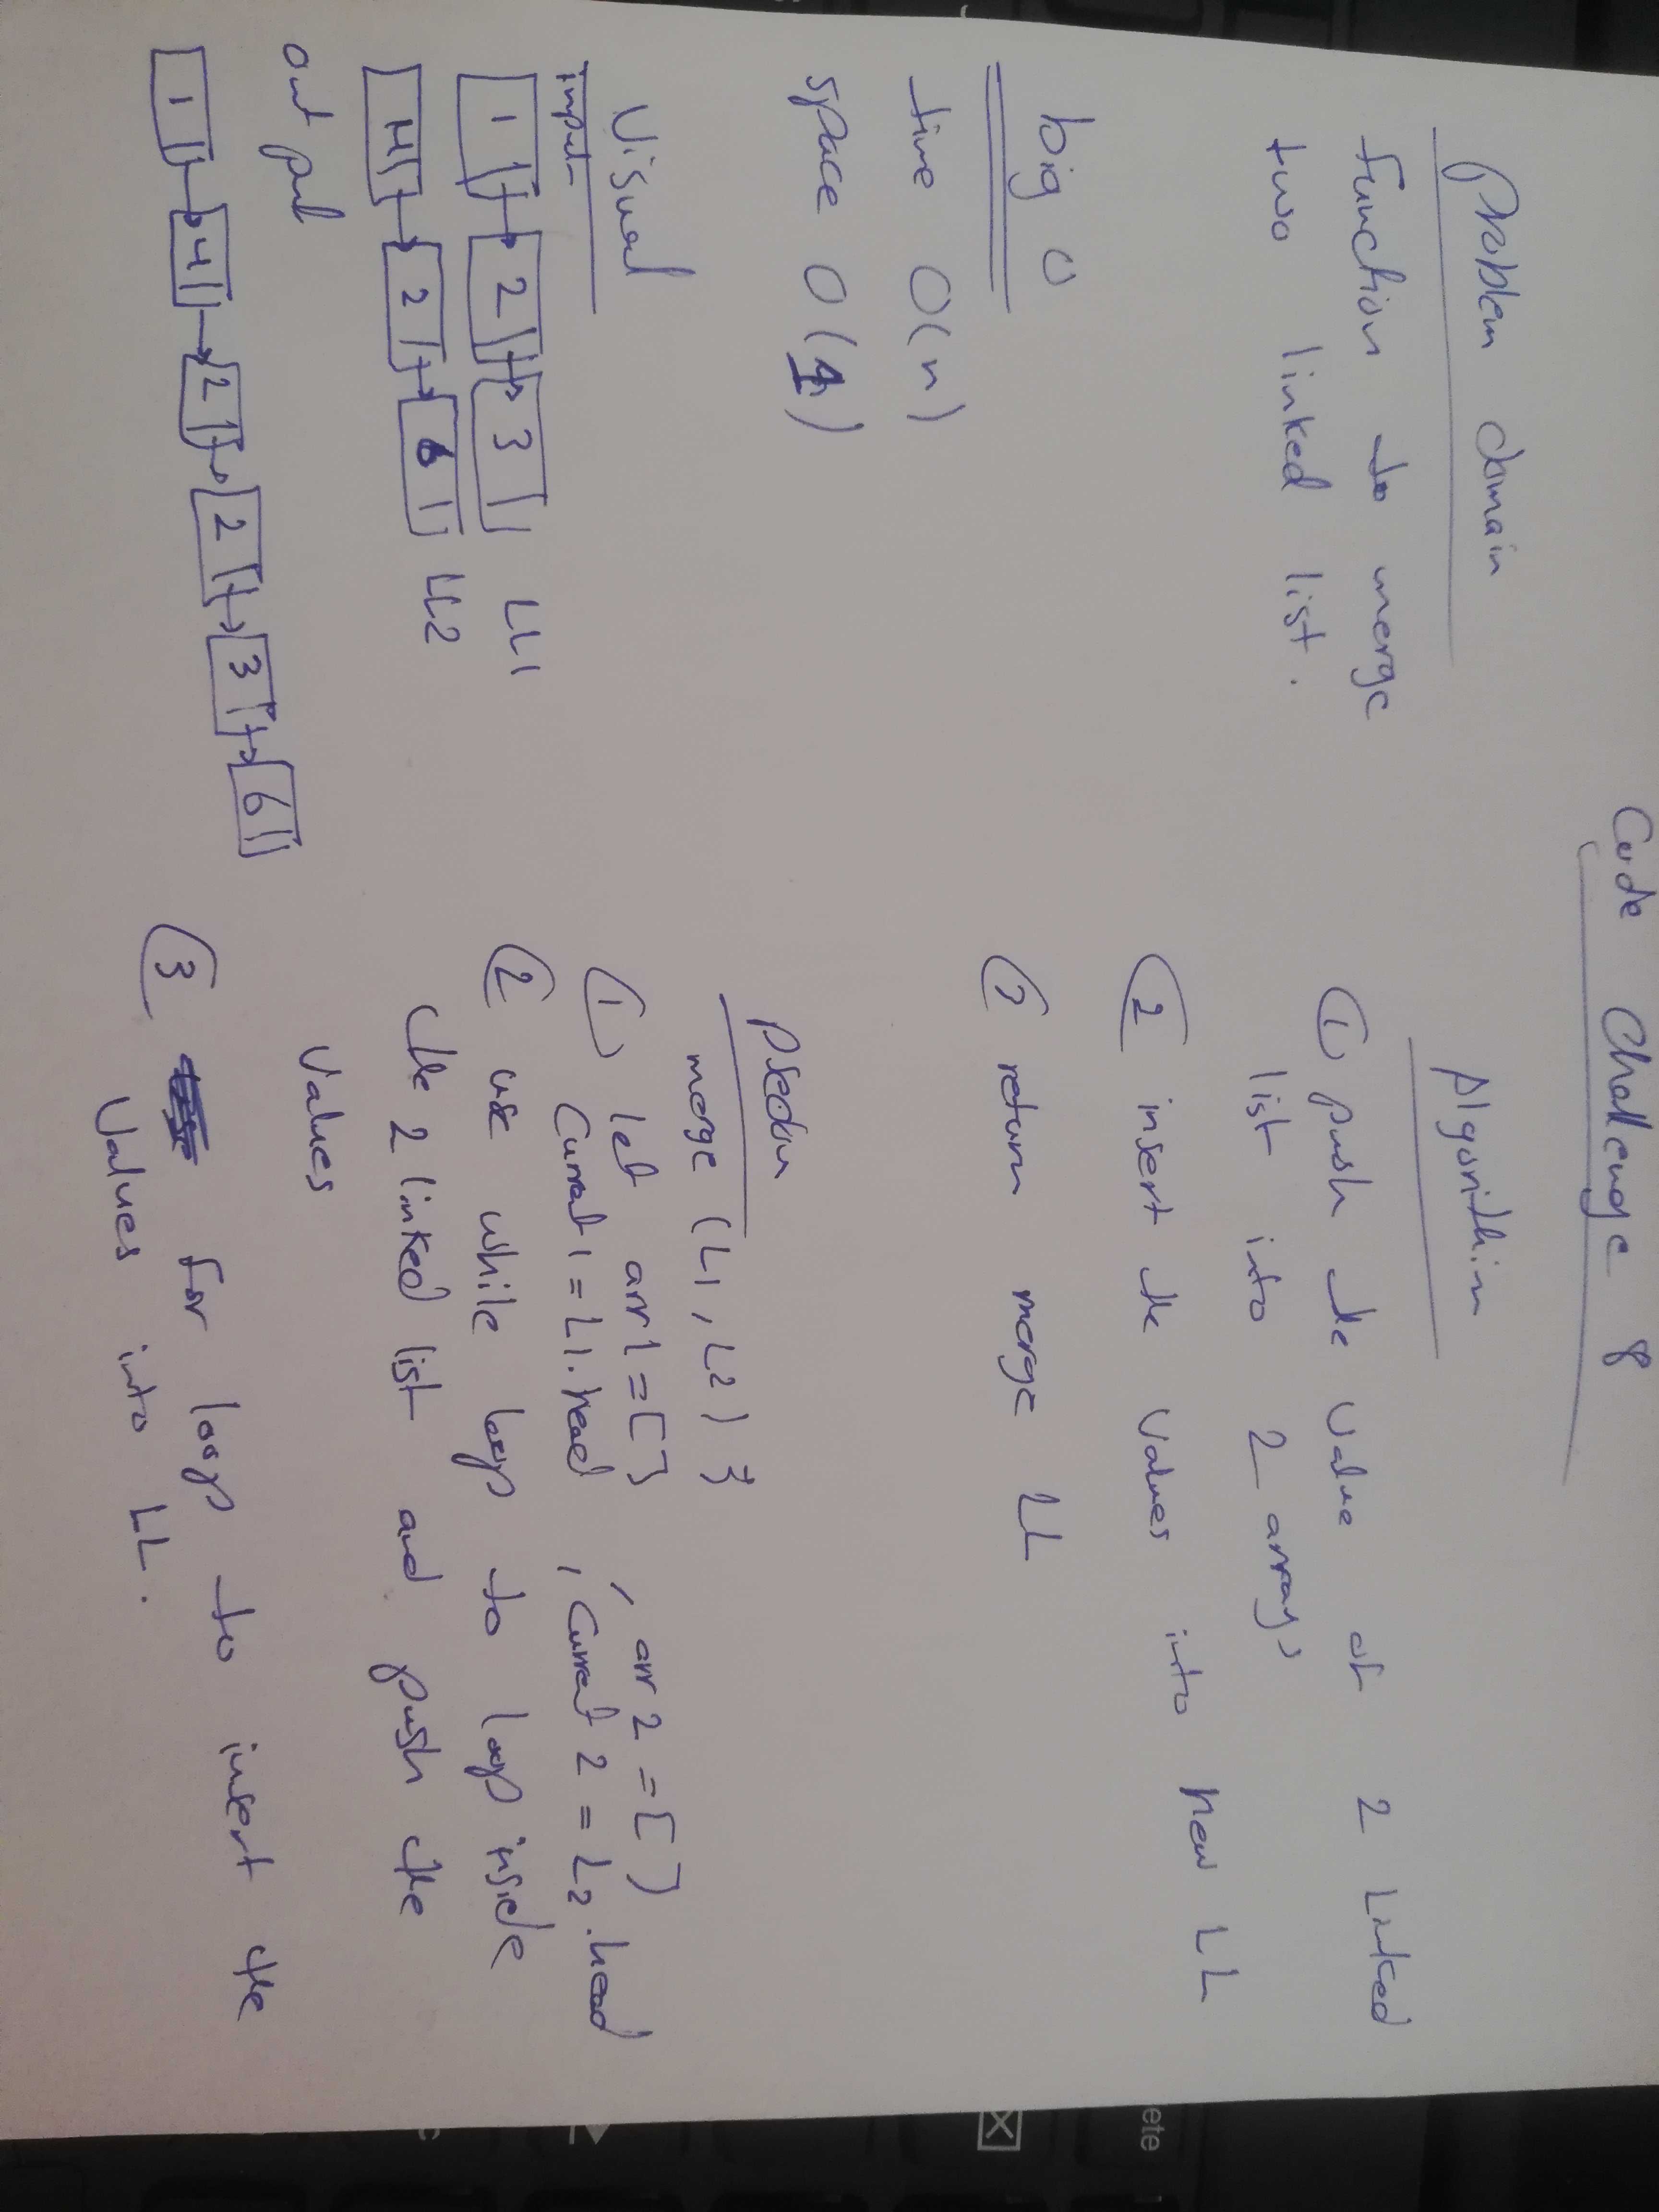 Code Challenge 8
problem domain
function to merge
two linked list.
big O
time O(n)
space O(1)
Visual
input
1 2 3 LL1
4 2 6 LL2
out put
1 4 2 2 3 6
Algorithim
① push the value of 2 Linked
list into 2 arrays
② insert the values into new LL
③ return merge LL
Psedou
merge (L1, L2) {
① let arr1 = [] , arr2 = []
Current1 = L1.head , Current2 = L2.head
② use while loop to loop inside
the 2 linked list and push the
values
③ for loop to insert the
values into LL.
ete